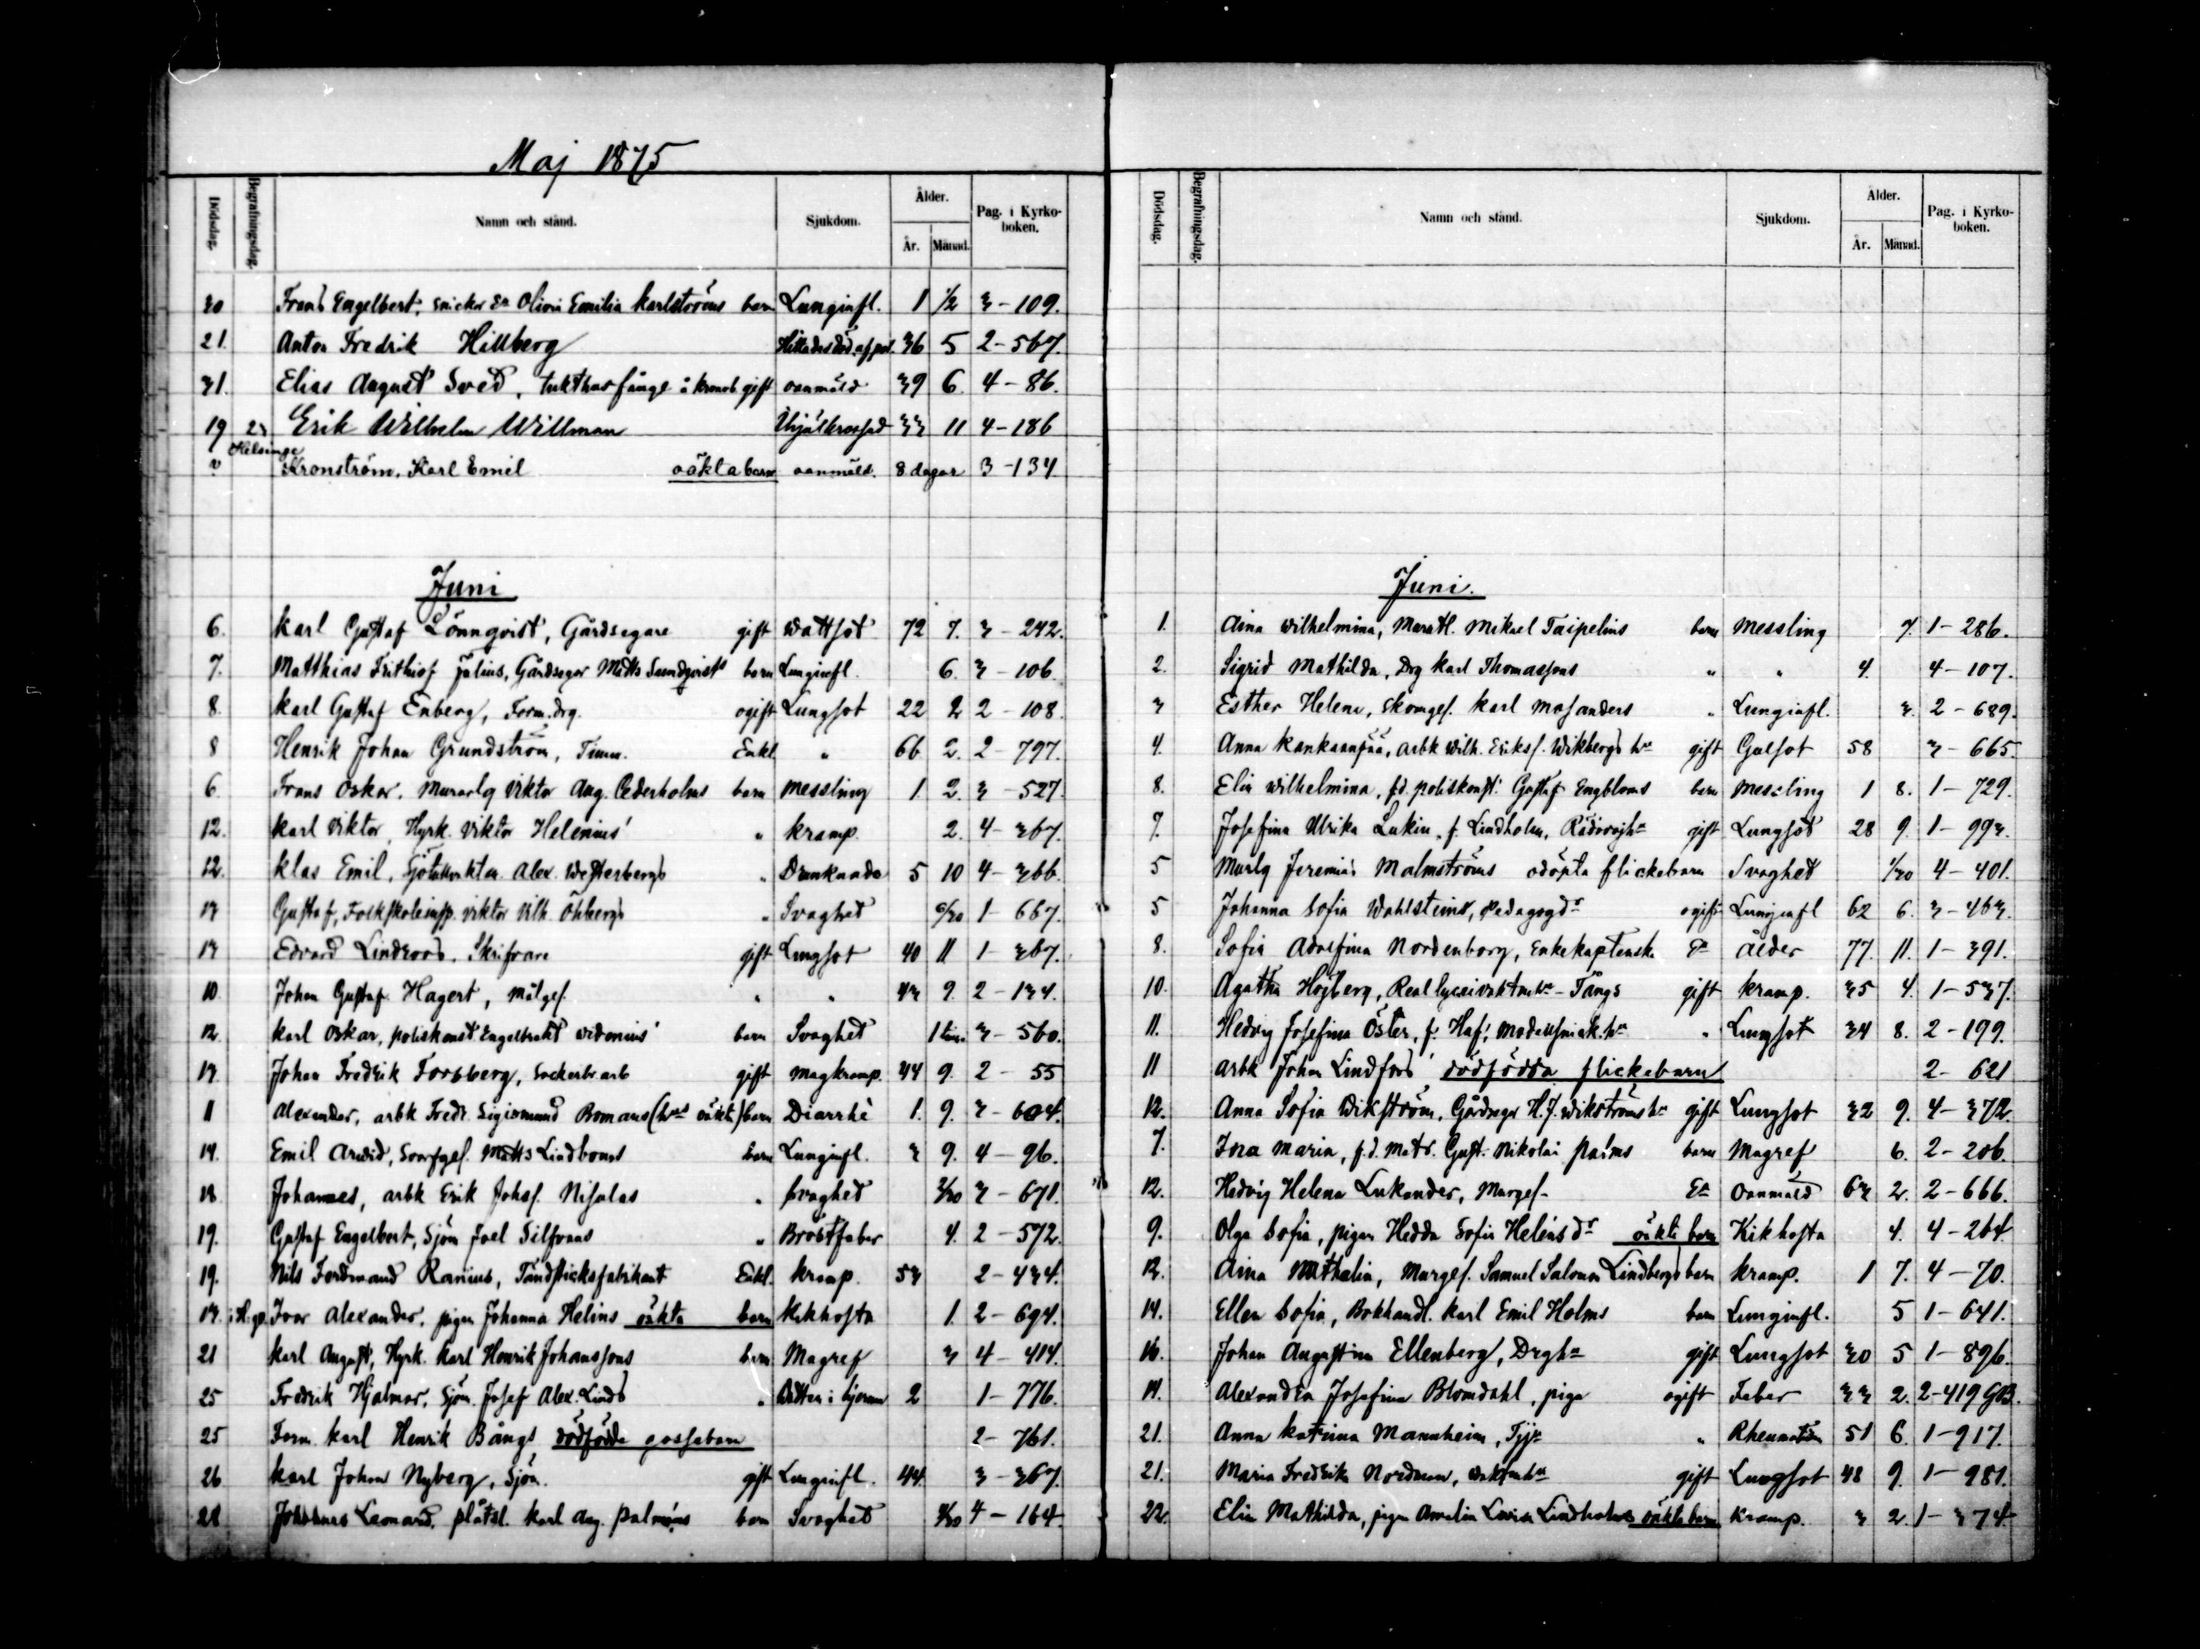 Maj 1875
Dödsdag. Begrafningsdag. Namn och stånd. Sjukdom. Ålder. År. Månad. Pag. i Kyrko-boken.
30 Frans Engelbert, snickar Ea Olivia Emilia Karlströms barn Lunginfl. 1 1/2 3 - 109.
21. Anton Fredrik Hillberg 36 5 2 - 567.
31. Elias August Sved, tukthusfånge å kronob. gift oanmäld 39 6. 4 - 86.
19 23 Erik Wilhelm Willman 33 11 4 - 186
Helsinge
Kronström, Karl Emil oäkta barn oanmäld. 8 dagar 3 - 134
Juni
6. Karl Gustaf Lönnqvist, Gårdsegare gift Wattsot 72 7. 3 - 242.
7. Matthias Frithiof Julius, Gårdsegar Matts Sundqvists barn Lunginfl. 6. 3 - 106.
8. Karl Gustaf Enberg, Form.drg. ogift Lungsot 22 2 2 - 108.
8 Henrik Johan Grundström, Timm. Enkl. " 66 2. 2 - 797.
6. Frans Oskar, Murarlg Viktor Aug. Cederholms barn Messling 1 2. 3 - 527.
12. Karl Viktor, Hyrk. Viktor Helenius' " kramp. 2. 4 - 367.
12. Klas Emil, Alex. Westerbergs " Drunknade 5 10 4 - 366.
13 Gustaf, Folkskoleinsp. Viktor Vilh. Öhbergs " Svaghet 6/30 1 - 667.
13 Edvard Lindroos, Skrifvare gift Lungsot 40 11 1 - 367.
10. Johan Gustaf Hagert, Målges. " " 43 9. 2 - 134.
12. Karl Oskar, poliskonst. Engelbrekt Widenius' barn Svaghet 1 tim. 3 - 560.
13. Johan Fredrik Forsberg, Sockerbr.arb gift Magkramp. 44 9. 2 - 55
11 Alexander, arbk Fredr. Sigismund Bomans (hns oäkta) barn Diarrhé 1. 9. 3 - 604.
14. Emil Arvid, Matts Lindboms barn Lunginfl. 3 9. 4 - 96.
18. Johannes, arbk Erik Johs. Nisulas " svaghet 2/30 3 - 671.
19. Gustaf Engelbert, Sjöm Joel Silfvans " Bröstfeber 4. 2 - 572.
19. Nils Ferdinand Ranius, Tändsticksfabrikant Enkl. kramp. 53 2 - 434.
13. i H:gs. Ivar Alexander, pigan Johanna Helins oäkta barn Kikhosta 1. 2 - 694.
21 Karl August, Hyrk. Karl Henrik Johanssons barn Magref 3 4 - 414.
25 Fredrik Hjalmar, Sjöm. Josef Alex. Linds " Watten i hjernan 2 1 - 776.
25 Form. Karl Henrik Bångs dödfödda gossebarn 2 - 761.
26 Karl Johan Nyberg, Sjöm. gift Lunginfl. 44. 3 - 367.
28 Johannes Leonard, plåtsl. Karl Aug. Palméns barn Svaghet 4 - 164.
Dödsdag. Begrafningsdag. Namn och stånd. Sjukdom. Ålder. År. Månad. Pag. i Kyrko-boken.
Juni.
1. Aina Wilhelmina, Mikael Taipelius barn Messling 7. 1 - 286.
2. Sigrid Mathilda, Drg Karl Thomassons " " 4. 4 - 107.
3 Esther Helena, Skomges. Karl Mosanders " Lunginfl. 3. 2 - 689.
4. Anna Kankaanpää, arbk Wilh. Eriks. Wikbergs hu gift Gulsot 58 3 - 665.
8. Elin Wilhelmina, f.d. poliskonst. Gustaf Engbloms barn Messling 1 8. 1 - 729.
7. Josefina Ulrika Lukin, f. Lindholm, gift Lungsot 28 9. 1 - 993.
5 Murlg Jeremias Malmströms odöpta flickebarn Svaghet 1/30 4 - 401.
5 Johanna Sofia Wahlsteins, Pedagogdr ogift Lunginfl 62 6. 3 - 463.
8. Sofia Adolfina Nordenborg, Enkekaptenska Ea Ålder 77. 11. 1 - 391.
10. Agatha Högberg, Reallyceivaktm.hu - Tångs gift kramp. 35 4. 1 - 537.
11. Hedvig Josefina Öster, f. Haf, hu " Lungsot 34 8. 2 - 199.
11 arbk Johan Lindfors' dödfödda flickebarn 2 - 621
12. Anna Sofia Wikström, Gårdsegar H.J. Wikströms hu gift Lungsot 32 9. 4 - 372.
7. Ina Maria, f.d. Matr. Gust. Nikolai Palms barn Magref 6. 2 - 206.
12. Hedvig Helena Lukander, Murges. Ea Oanmäld 63 2. 2 - 666.
9. Olga Sofia, pigan Hedda Sofia Helinsdr oäkta barn Kikhosta 4. 4 - 264.
13. Aina Mathalia, Murges. Samuel Salomon Lindbergs barn kramp. 1 7. 4 - 70.
14. Ellen Sofia, Bokhandl. Karl Emil Holms barn Lunginfl. 5 1 - 641.
16. Johan Augustina Ellenberg, Drghu gift Lungsot 30 5 1 - 896.
14. Alexandra Josefina Blomdahl, piga ogift Feber 33 2. 2 - 419 GB.
21. Anna Katrina Mannheim, " Rheumatism 51 6. 1 - 917.
21. Maria Fredrika Nordman, vaktmhu gift Lungsot 48 9. 1 - 981.
22. Elin Mathilda, pigan Amalia Lovisa Lindholms oäkta barn kramp. 3 2. 1 - 374.